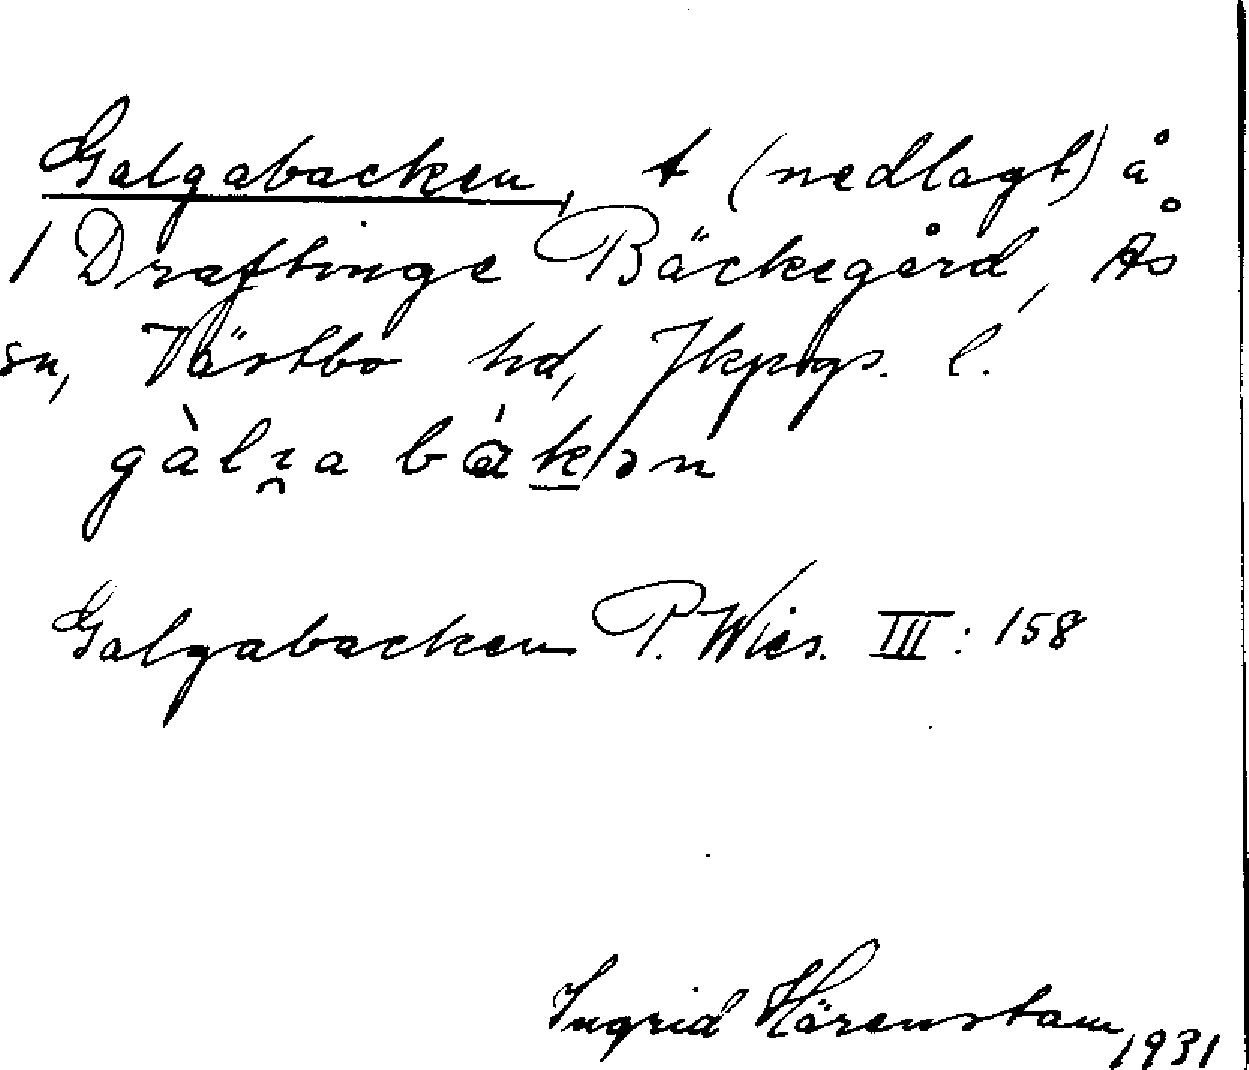 Galgabacken, t (nedlagt) å
1 Draftinge Bäckegård, Ås
sn, Västbo hd, Jkpgs. l.
Galgabacken P. Wies. III: 158
Ingrid Härenstam, 1931